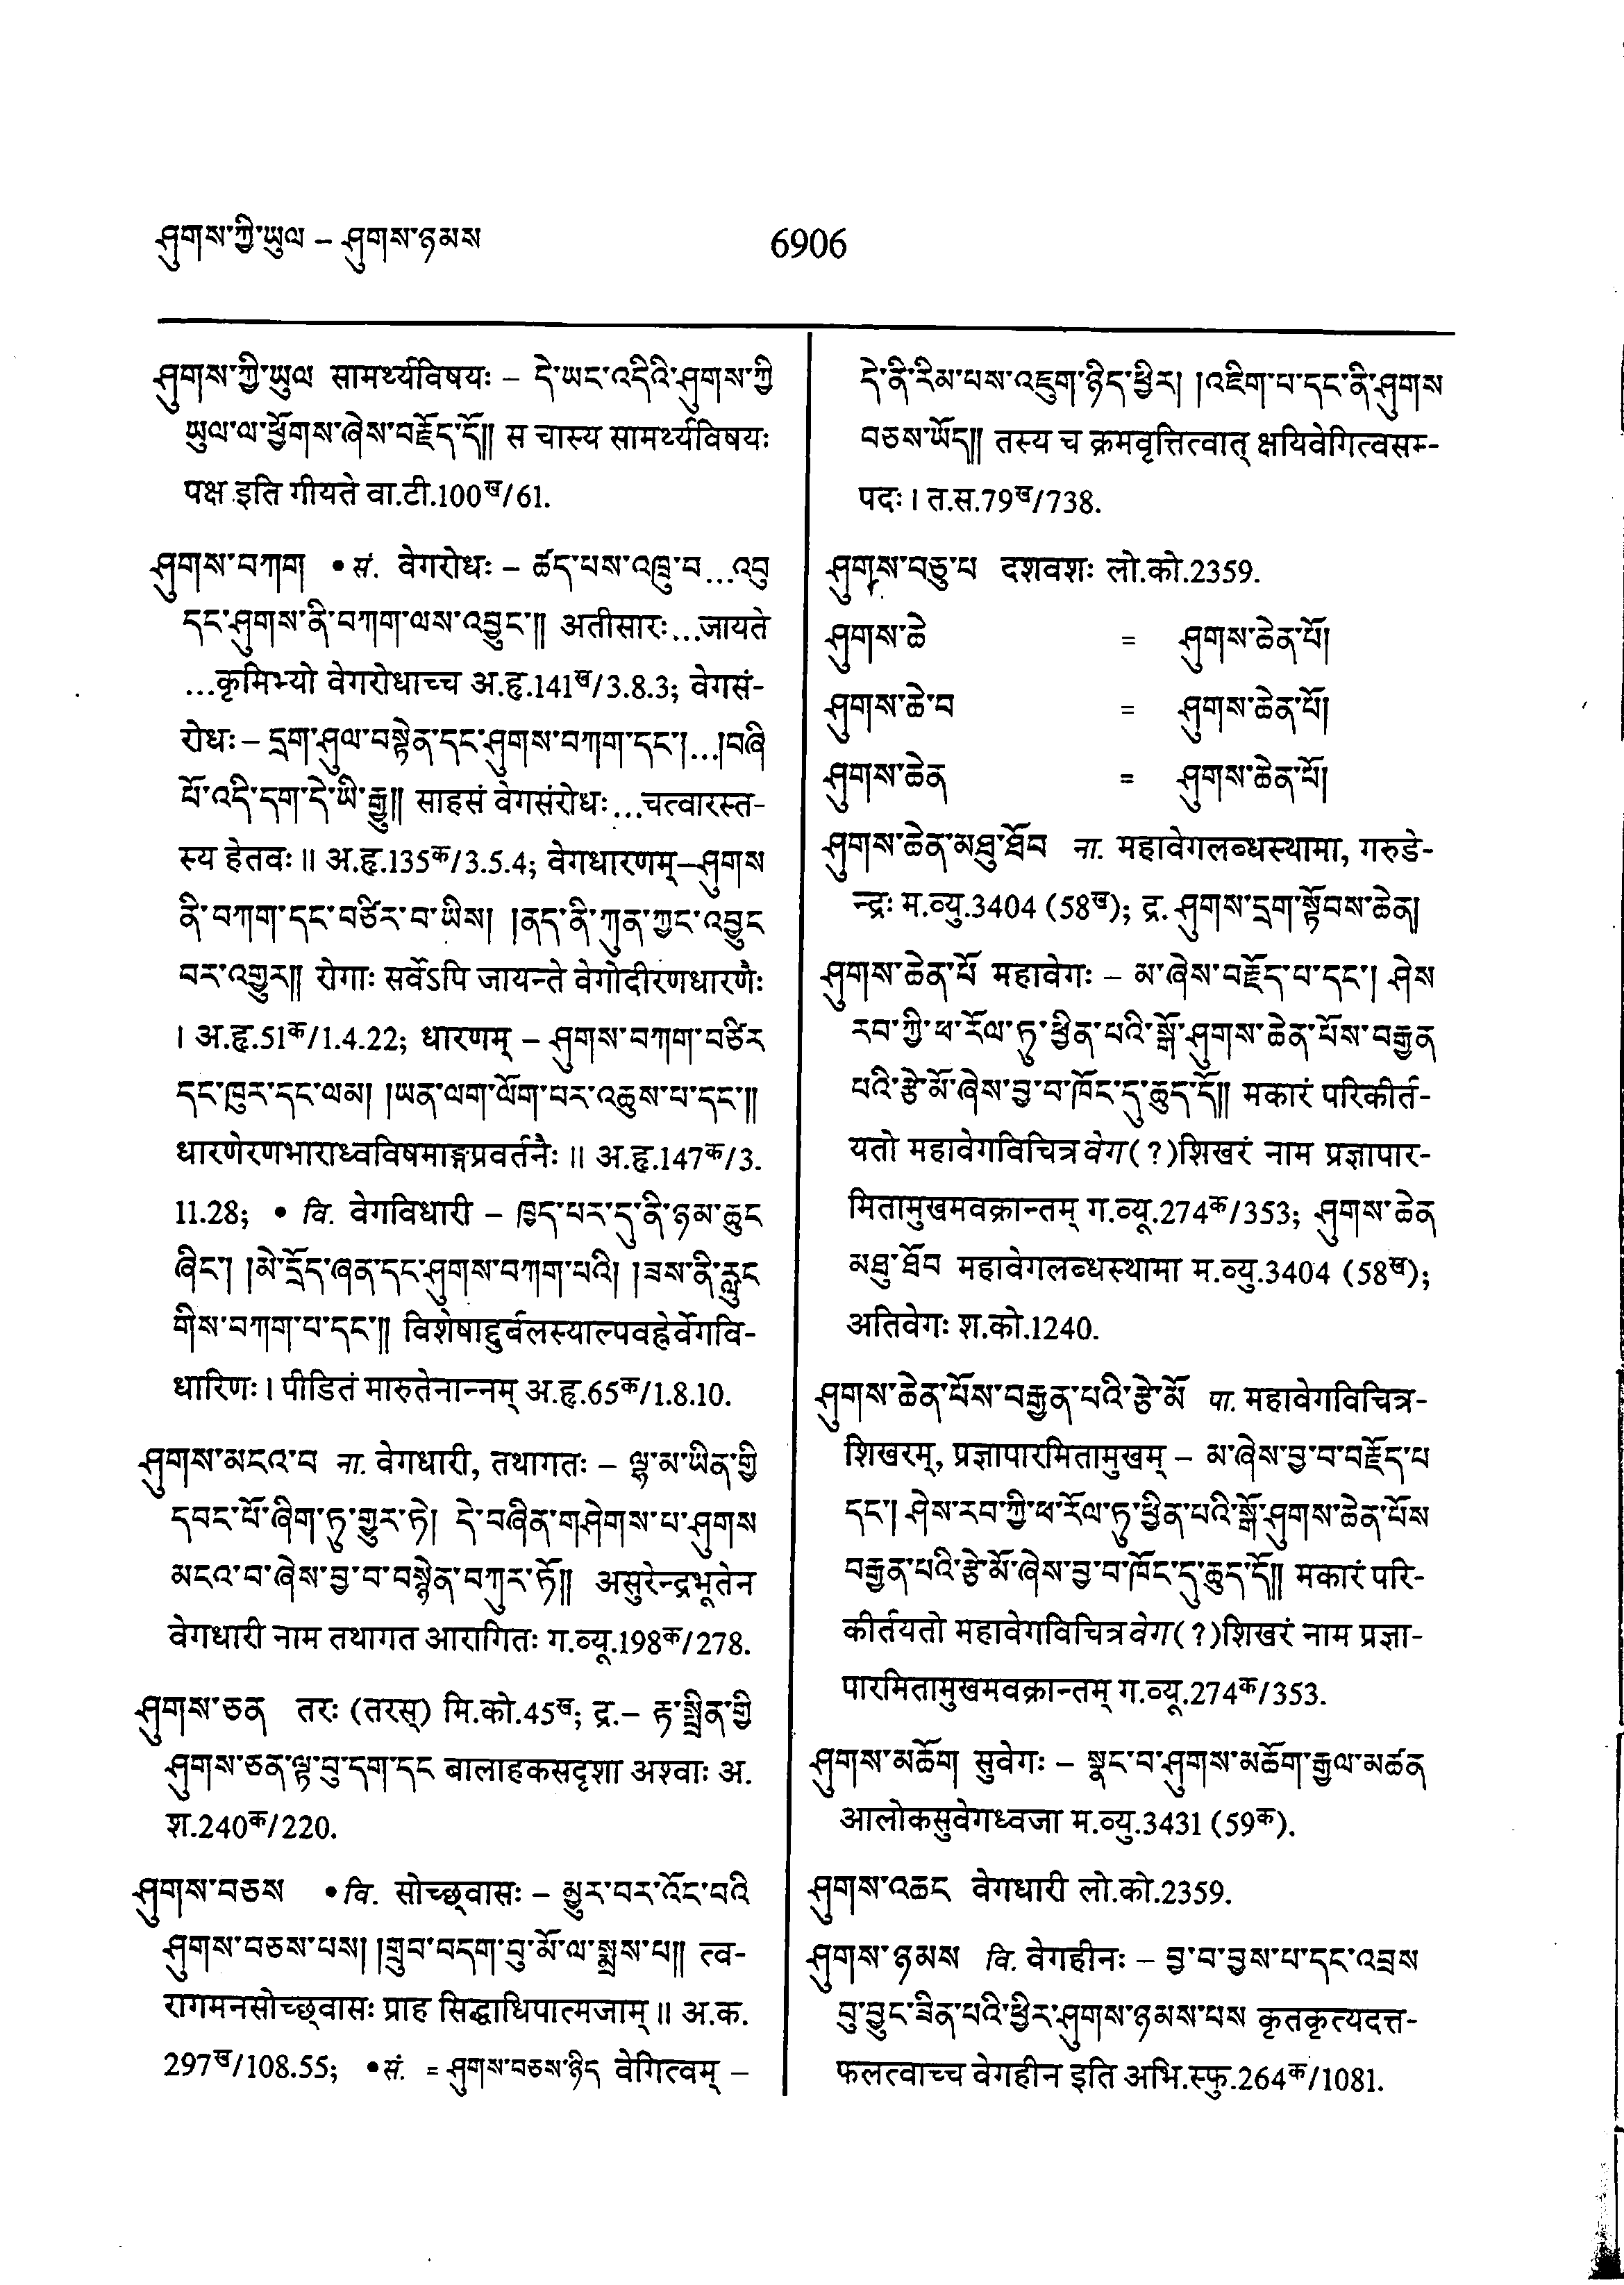 ཤུགས་ཀྱི་ཡུལ – ཤུགས་ཉམས
6906
ཤུགས་ཀྱི་ཡུལ सामर्थ्यविषयः – དེ་ཡང་འདིའི་ཤུགས་ཀྱི
ཡུལ་ལ་ཕྱོགས་ཞེས་བརྗོད་དོ།། स चास्य सामर्थ्यविषयः
पक्ष इति गीयते वा.टी.100ख/61.
ཤུགས་བཀག • सं. वेगरोधः – ཚད་པས་འཁྲུ་བ...འབུ
དང་ཤུགས་ནི་བཀག་ལས་འབྱུང་།། अतीसारः...जायते
...कृमिभ्यो वेगरोधाच्च अ.हृ.141ख/3.8.3; वेगसं-
रोधः – དྲག་ཤུལ་བསྟེན་དང་ཤུགས་བཀག་དང་།...།བཞི
པོ་འདི་དག་དེ་ཡི་རྒྱུ།། साहसं वेगसंरोधः...चत्वारस्त-
स्य हेतवः ॥ अ.हृ.135क/3.5.4; वेगधारणम्–ཤུགས
ནི་བཀག་དང་བཙིར་བ་ཡིས། །ནད་ནི་ཀུན་ཀྱང་འབྱུང
བར་འགྱུར།། रोगाः सर्वेऽपि जायन्ते वेगोदीरणधारणैः
। अ.हृ.51क/1.4.22; धारणम् – ཤུགས་བཀག་བཙིར
དང་ཁུར་དང་ལམ། །ཡན་ལག་ལོག་བར་འཆུས་པ་དང་།།
धारणेरणभाराध्वविषमाङ्गप्रवर्तनैः ॥ अ.हृ.147क/3.
11.28; • वि. वेगविधारी – ཁྱད་པར་དུ་ནི་ཉམ་ཆུང
ཞིང་། །མེ་དྲོད་ཞན་དང་ཤུགས་བཀག་པའི། །ཟས་ནི་རླུང
གིས་བཀག་པ་དང་།། विशेषाद्दुर्बलस्याल्पवह्नेर्वेगवि-
धारिणः । पीडितं मारुतेनान्नम् अ.हृ.65क/1.8.10.
ཤུགས་མངའ་བ ना. वेगधारी, तथागतः – ལྷ་མ་ཡིན་གྱི
དབང་པོ་ཞིག་ཏུ་གྱུར་ཏེ། དེ་བཞིན་གཤེགས་པ་ཤུགས
མངའ་བ་ཞེས་བྱ་བ་བསྙེན་བཀུར་ཏོ།། असुरेन्द्रभूतेन
वेगधारी नाम तथागत आरागितः ग.व्यू.198क/278.
ཤུགས་ཅན तरः (तरस्) मि.को.45ख; द्र.– རྟ་སྤྲིན་གྱི
ཤུགས་ཅན་ལྟ་བུ་དག་དང बालाहकसदृशा अश्वाः अ.
श.240क/220.
ཤུགས་བཅས • वि. सोच्छ्वासः – མྱུར་བར་འོང་བའི
ཤུགས་བཅས་པས། །གྲུབ་བདག་བུ་མོ་ལ་སྨྲས་པ།། त्व-
रागमनसोच्छ्वासः प्राह सिद्धाधिपात्मजाम् ॥ अ.क.
297ख/108.55; • सं. = ཤུགས་བཅས་ཉིད वेगित्वम् –
དེ་ནི་རིམ་པས་འཇུག་ཉིད་ཕྱིར། །འཇིག་པ་དང་ནི་ཤུགས
བཅས་ཡོད།། तस्य च क्रमवृत्तित्वात् क्षयिवेगित्वसम्-
पदः । त.स.79ख/738.
ཤུགས་བཅུ་པ दशवशः लो.को.2359.
ཤུགས་ཆེ = ཤུགས་ཆེན་པོ།
ཤུགས་ཆེ་བ = ཤུགས་ཆེན་པོ།
ཤུགས་ཆེན = ཤུགས་ཆེན་པོ།
ཤུགས་ཆེན་མཐུ་ཐོབ ना. महावेगलब्धस्थामा, गरुडे-
न्द्रः म.व्यु.3404 (58ख); द्र. ཤུགས་དྲག་སྟོབས་ཆེན།
ཤུགས་ཆེན་པོ महावेगः – མ་ཞེས་བརྗོད་པ་དང་། ཤེས
རབ་ཀྱི་ཕ་རོལ་ཏུ་ཕྱིན་པའི་སྒོ་ཤུགས་ཆེན་པོས་བརྒྱན
པའི་རྩེ་མོ་ཞེས་བྱ་བ་ཁོང་དུ་ཆུད་དོ།། मकारं परिकीर्त-
यतो महावेगविचित्र वेग(?)शिखरं नाम प्रज्ञापार-
मितामुखमवक्रान्तम् ग.व्यू.274क/353; ཤུགས་ཆེན
མཐུ་ཐོབ महावेगलब्धस्थामा म.व्यु.3404 (58ख);
अतिवेगः श.को.1240.
ཤུགས་ཆེན་པོས་བརྒྱན་པའི་རྩེ་མོ पा. महावेगविचित्र-
शिखरम्, प्रज्ञापारमितामुखम् – མ་ཞེས་བྱ་བ་བརྗོད་པ
དང་། ཤེས་རབ་ཀྱི་ཕ་རོལ་ཏུ་ཕྱིན་པའི་སྒོ་ཤུགས་ཆེན་པོས
བརྒྱན་པའི་རྩེ་མོ་ཞེས་བྱ་བ་ཁོང་དུ་ཆུད་དོ།། मकारं परि-
कीर्तयतो महावेगविचित्र वेग(?)शिखरं नाम प्रज्ञा-
पारमितामुखमवक्रान्तम् ग.व्यू.274क/353.
ཤུགས་མཆོག सुवेगः – སྣང་བ་ཤུགས་མཆོག་རྒྱལ་མཚན
आलोकसुवेगध्वजा म.व्यु.3431 (59क).
ཤུགས་འཆང वेगधारी लो.को.2359.
ཤུགས་ཉམས वि. वेगहीनः – བྱ་བ་བྱས་པ་དང་འབྲས
བུ་བྱུང་ཟིན་པའི་ཕྱིར་ཤུགས་ཉམས་པས कृतकृत्यदत्त-
फलत्वाच्च वेगहीन इति अभि.स्फु.264क/1081.